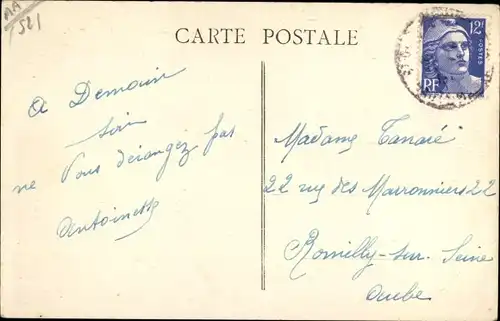 AA
521
CARTE POSTALE
12F
POSTES
RF
A Demain
soir
ne Vous dérangez pas
Antoinette
Madame Canaré
22 rue des Marronniers 22
Romilly-sur-Seine
Aube